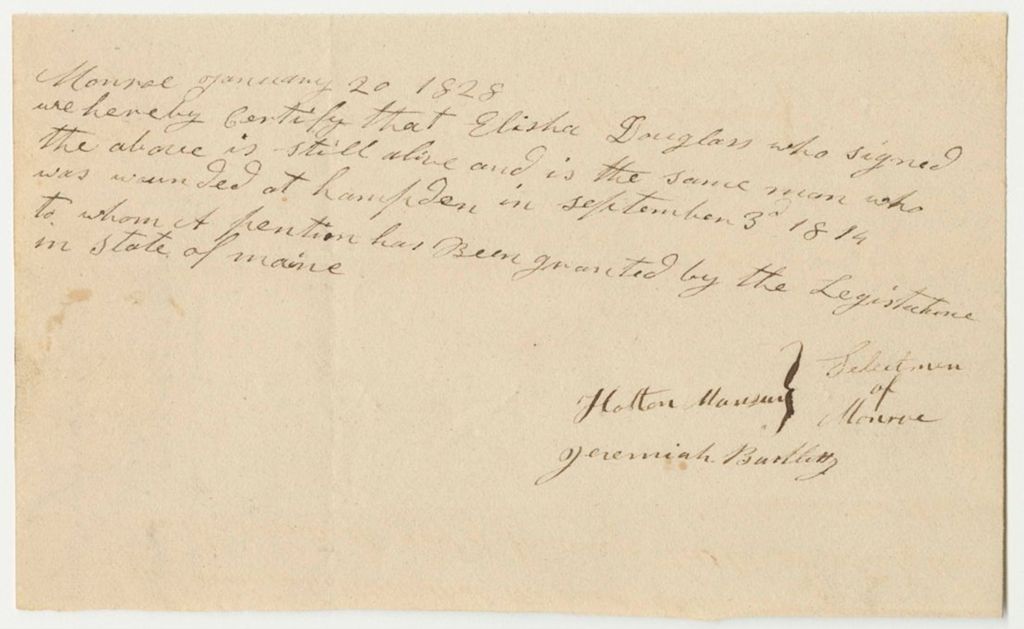 Monroe January 20 1828
we hereby Certify that Elisha Douglass who signed
the above is still alive and is the same man who
was wounded at hampden in september 3d 1814
to whom A pention has Been granted by the Legislature
in State of maine
Holton Mansur } Selectmen
of
Jeremiah Bartlett Monroe